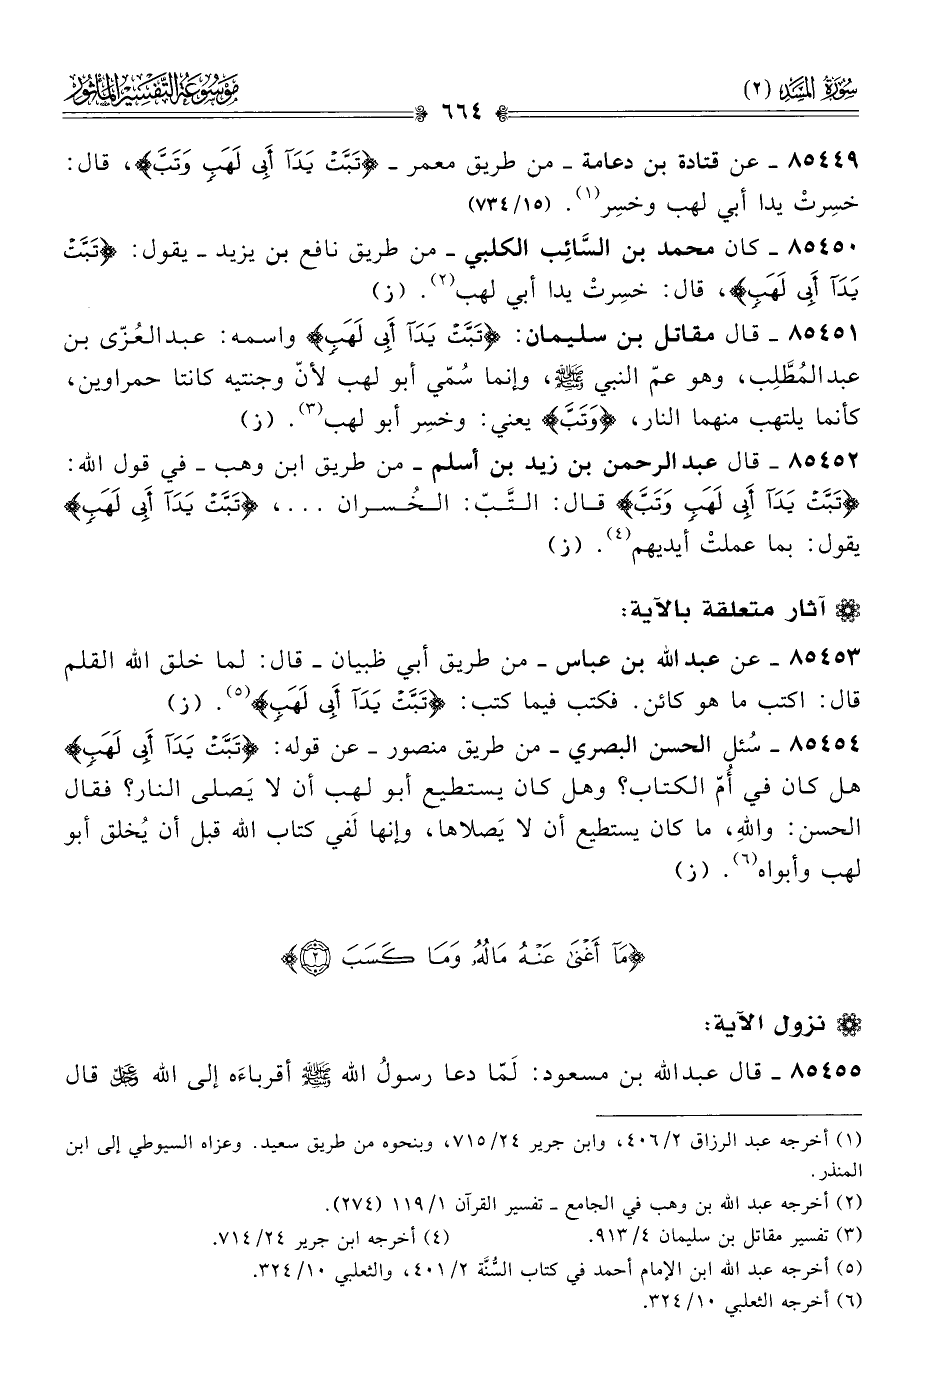 سُورَةُ المَسَد (٢)
٦٦٤
مَوْسُوعَة التَّفْسِير المَأْثُور
٨٥٤٤٩ ـ عن قتادة بن دعامة ـ من طريق معمر ـ ﴿تَبَّتْ يَدَآ أَبِى لَهَبٍ وَتَبَّ﴾، قال:
خسِرتْ يدا أبي لهب وخسِر(١). (١٥/ ٧٣٤)
٨٥٤٥٠ ـ كان محمد بن السَّائِب الكلبي ـ من طريق نافع بن يزيد ـ يقول: ﴿تَبَّتْ
يَدَآ أَبِى لَهَبٍ﴾، قال: خسِرتْ يدا أبي لهب(٢). (ز)
٨٥٤٥١ ـ قال مقاتل بن سليمان: ﴿تَبَّتْ يَدَآ أَبِى لَهَبٍ﴾ واسمه: عبدالعُزّى بن
عبدالمُطَّلِب، وهو عمّ النبي ﷺ، وإنما سُمّي أبو لهب لأنّ وجنتيه كانتا حمراوين،
كأنما يلتهب منهما النار، ﴿وَتَبَّ﴾ يعني: وخسِر أبو لهب(٣). (ز)
٨٥٤٥٢ ـ قال عبدالرحمن بن زيد بن أسلم ـ من طريق ابن وهب ـ في قول الله:
﴿تَبَّتْ يَدَآ أَبِى لَهَبٍ وَتَبَّ﴾ قال: التَّبّ: الخُسران ...، ﴿تَبَّتْ يَدَآ أَبِى لَهَبٍ﴾
يقول: بما عملتْ أيديهم(٤). (ز)
آثار متعلقة بالآية:
٨٥٤٥٣ ـ عن عبدالله بن عباس ـ من طريق أبي ظبيان ـ قال: لما خلق الله القلم
قال: اكتب ما هو كائن. فكتب فيما كتب: ﴿تَبَّتْ يَدَآ أَبِى لَهَبٍ﴾(٥). (ز)
٨٥٤٥٤ ـ سُئل الحسن البصري ـ من طريق منصور ـ عن قوله: ﴿تَبَّتْ يَدَآ أَبِى لَهَبٍ﴾
هل كان في أُمّ الكتاب؟ وهل كان يستطيع أبو لهب أن لا يَصلى النار؟ فقال
الحسن: واللهِ، ما كان يستطيع أن لا يَصلاها، وإنها لَفي كتاب الله قبل أن يُخلق أبو
لهب وأبواه(٦). (ز)
﴿مَآ أَغْنَىٰ عَنْهُ مَالُهُۥ وَمَا كَسَبَ ٢﴾
نزول الآية:
٨٥٤٥٥ ـ قال عبدالله بن مسعود: لَمّا دعا رسولُ الله ﷺ أقرباءَه إلى الله ﷻ قال
(١) أخرجه عبد الرزاق ٤٠٦/٢، وابن جرير ٧١٥/٢٤، وبنحوه من طريق سعيد. وعزاه السيوطي إلى ابن
المنذر.
(٢) أخرجه عبد الله بن وهب في الجامع ـ تفسير القرآن ١١٩/١ (٢٧٤).
(٣) تفسير مقاتل بن سليمان ٩١٣/٤. (٤) أخرجه ابن جرير ٧١٤/٢٤.
(٥) أخرجه عبد الله ابن الإمام أحمد في كتاب السُّنَّة ٤٠١/٢، والثعلبي ٣٢٤/١٠.
(٦) أخرجه الثعلبي ٣٢٤/١٠.